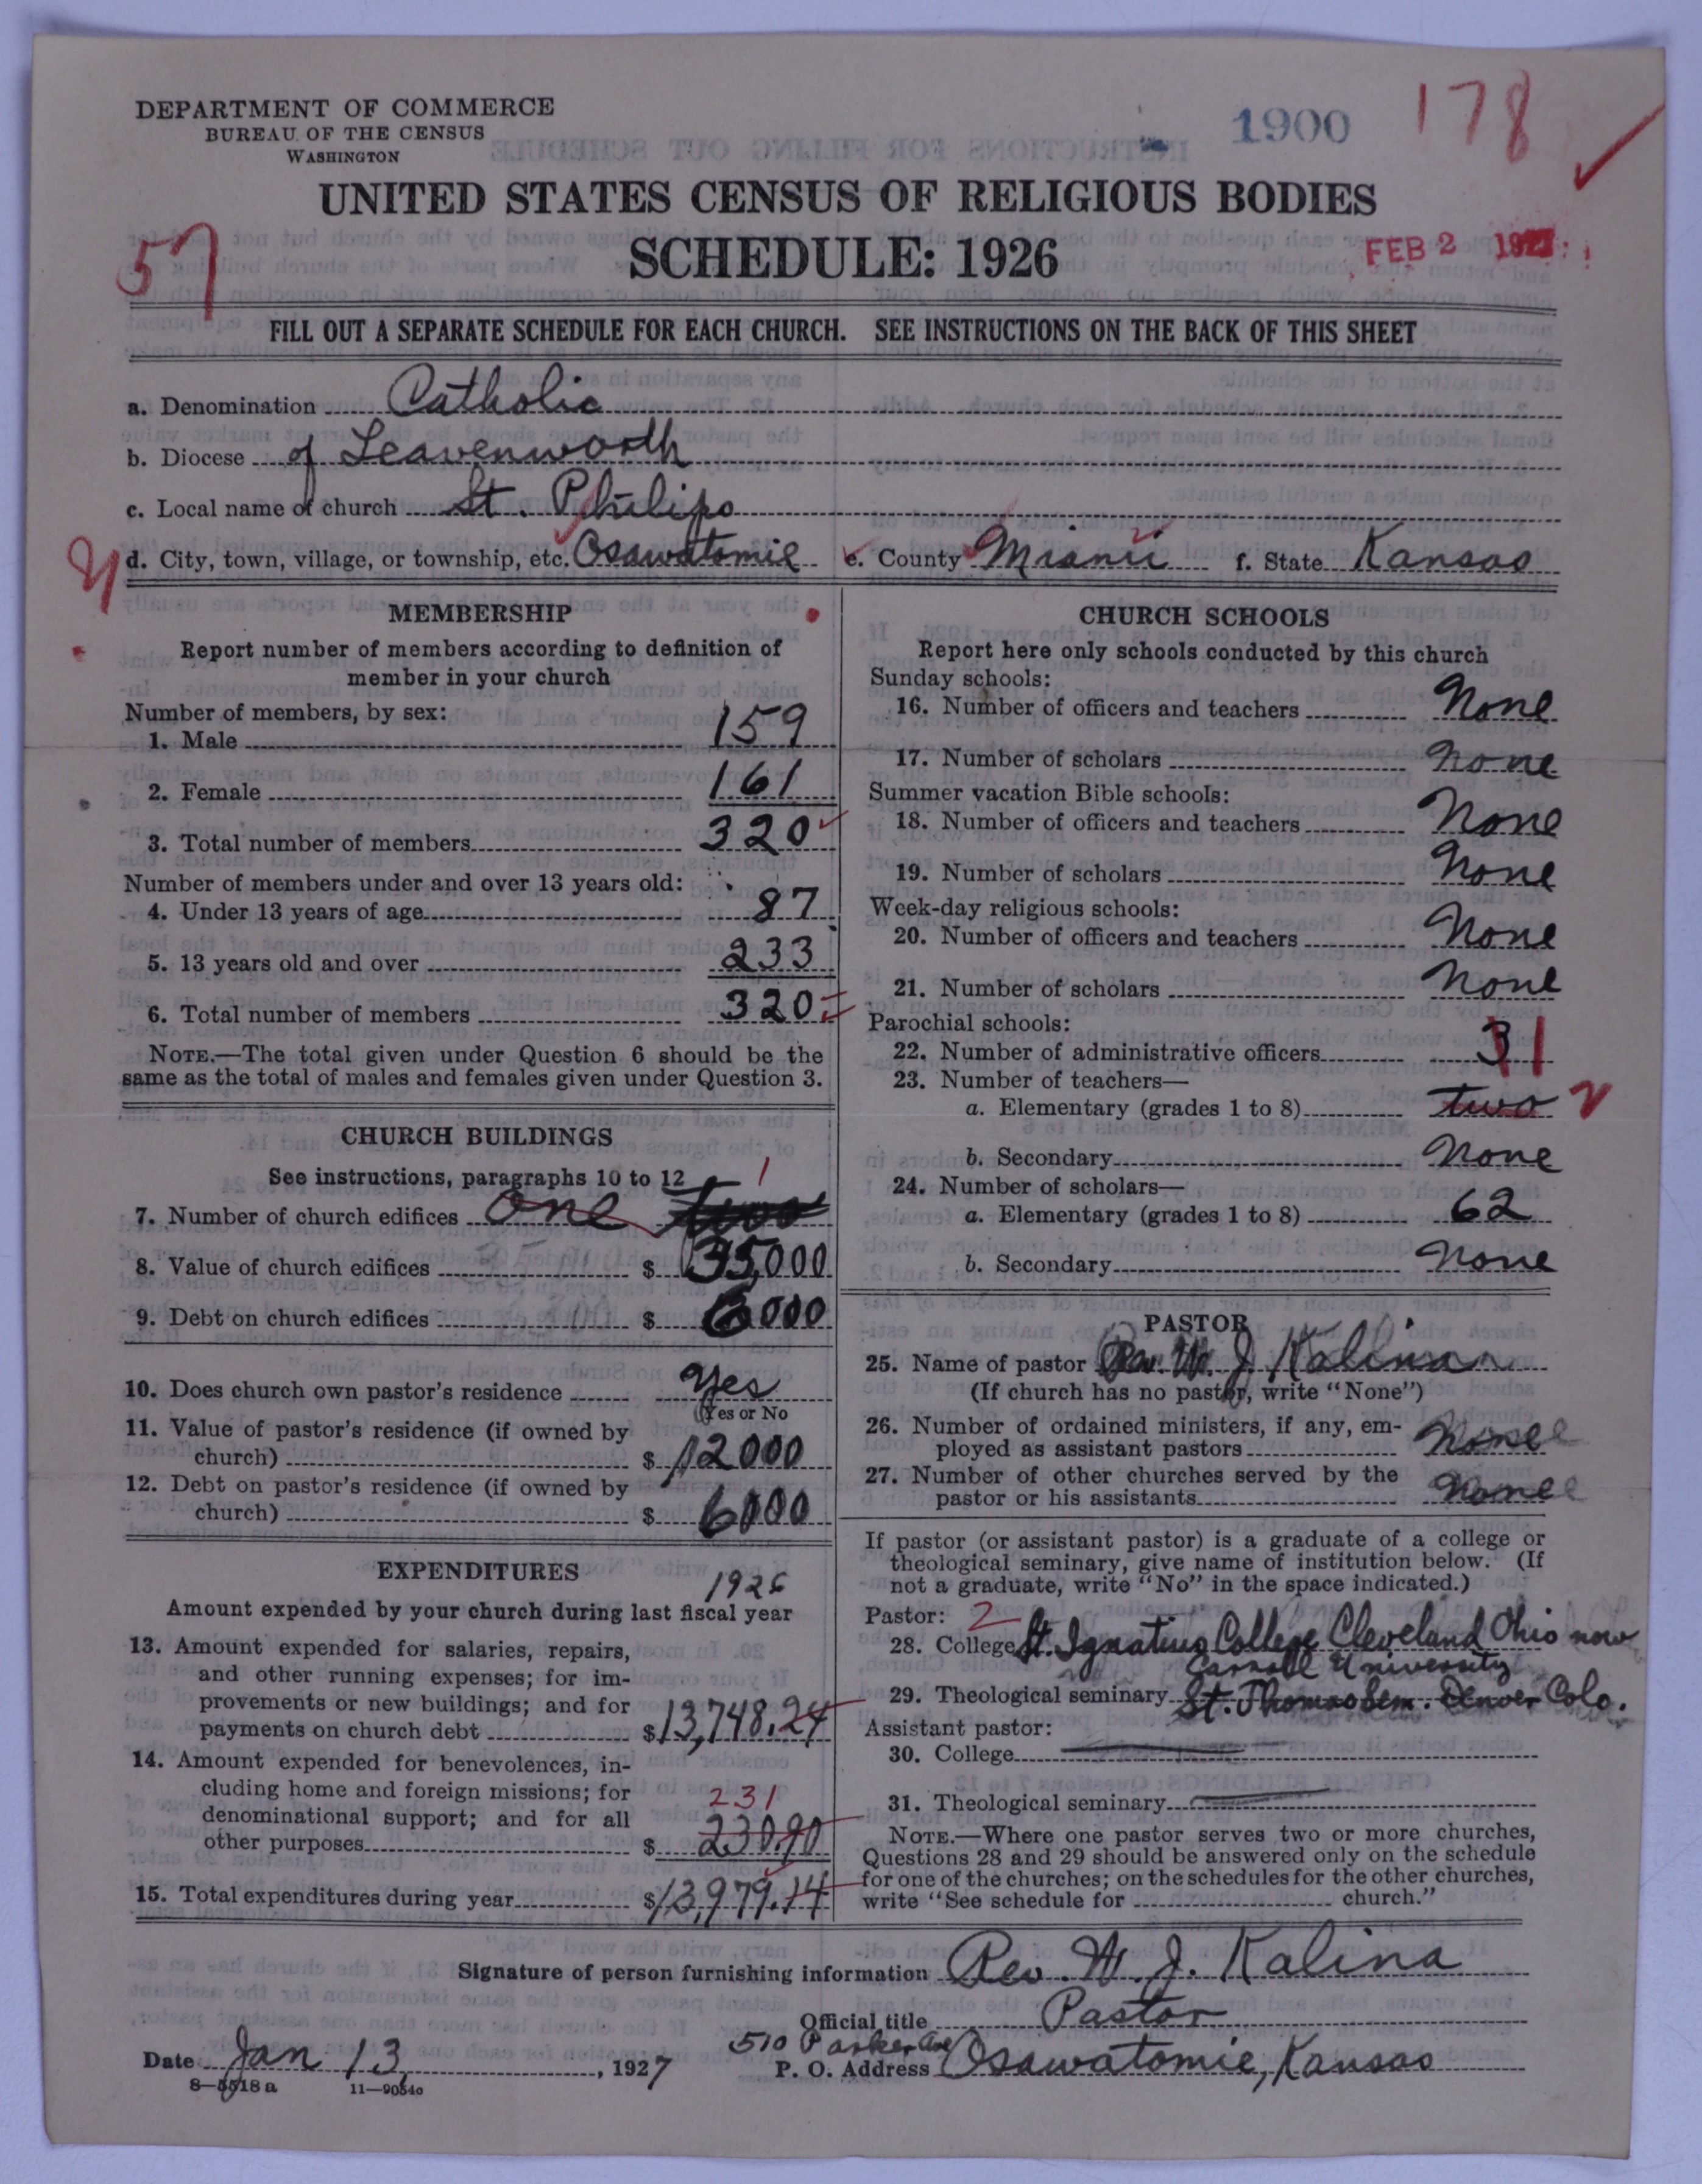 DEPARTMENT OF COMMERCE
BUREAU OF THE CENSUS
WASHINGTON
1900
178
UNITED STATES CENSUS OF RELIGIOUS BODIES
57
SCHEDULE: 1926
FEB 2 1927
FILL OUT A SEPARATE SCHEDULE FOR EACH CHURCH. SEE INSTRUCTIONS ON THE BACK OF THIS SHEET
a. Denomination Catholic
b. Diocese of Leavenworth
c. Local name of church St. Philips
d. City, town, village, or township, etc. Osawatomie e. County Miami f. State Kansas
MEMBERSHIP
Report number of members according to definition of
member in your church
Number of members, by sex:
1. Male 159
2. Female 161
3. Total number of members 320
Number of members under and over 13 years old:
4. Under 13 years of age 87
5. 13 years old and over 233
6. Total number of members 320
NOTE.—The total given under Question 6 should be the
same as the total of males and females given under Question 3.
CHURCH BUILDINGS
See instructions, paragraphs 10 to 12
1
7. Number of church edifices one two
8. Value of church edifices $ 35,000
9. Debt on church edifices $ 6000
10. Does church own pastor's residence Yes
(Yes or No
11. Value of pastor's residence (if owned by
church) $ 12000
12. Debt on pastor's residence (if owned by
church) $ 6000
EXPENDITURES
1926
Amount expended by your church during last fiscal year
13. Amount expended for salaries, repairs,
and other running expenses; for im-
provements or new buildings; and for
payments on church debt $13,748.24
14. Amount expended for benevolences, in-
cluding home and foreign missions; for
denominational support; and for all
231
other purposes $ 230.90
15. Total expenditures during year $13,979.14
CHURCH SCHOOLS
Report here only schools conducted by this church
Sunday schools:
16. Number of officers and teachers None
17. Number of scholars None
Summer vacation Bible schools:
18. Number of officers and teachers None
19. Number of scholars None
Week-day religious schools:
20. Number of officers and teachers None
21. Number of scholars None
Parochial schools:
22. Number of administrative officers 3 1
23. Number of teachers—
a. Elementary (grades 1 to 8) two 2
b. Secondary None
24. Number of scholars—
a. Elementary (grades 1 to 8) 62
b. Secondary None
PASTOR
25. Name of pastor Rev. W. J. Kalina
(If church has no pastor, write "None")
26. Number of ordained ministers, if any, em-
ployed as assistant pastors None
27. Number of other churches served by the
pastor or his assistants None
If pastor (or assistant pastor) is a graduate of a college or
theological seminary, give name of institution below. (If
not a graduate, write "No" in the space indicated.)
Pastor: 2
28. College St. Ignatius College Cleveland Ohio now
Carroll University
29. Theological seminary St. Thomas Sem. Denver Colo.
Assistant pastor:
30. College
31. Theological seminary
NOTE.—Where one pastor serves two or more churches,
Questions 28 and 29 should be answered only on the schedule
for one of the churches; on the schedules for the other churches,
write "See schedule for church."
Signature of person furnishing information Rev. W. J. Kalina
Official title Pastor
510 Parker Ave
Date Jan 13, 1927 P. O. Address Osawatomie, Kansas
8—5518 a 11—9054c